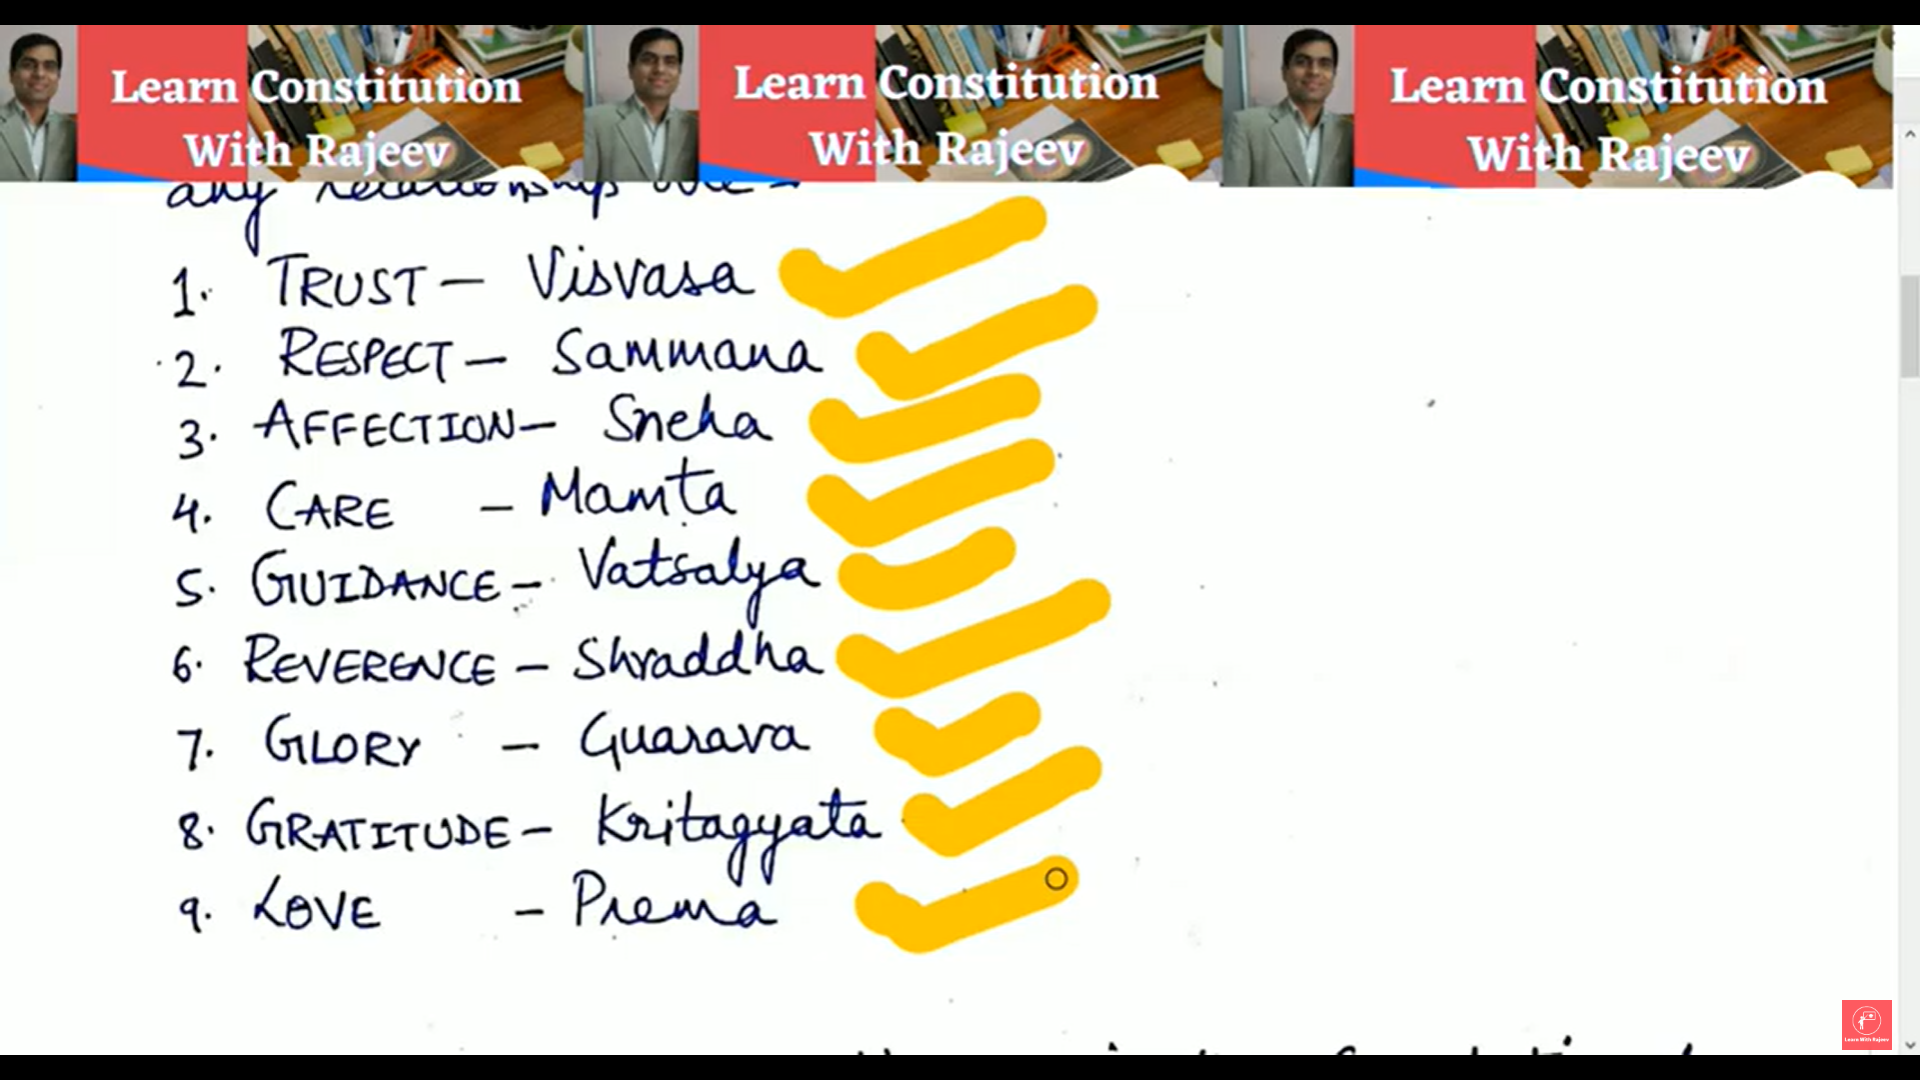 Learn Constitution
With Rajeev
Learn Constitution
With Rajeev
Learn Constitution
With Rajeev
any relationships are
1. TRUST - Visvasa
2. RESPECT - Sammana
3. AFFECTION - Sneha
4. CARE - Mamta
5. GUIDANCE - Vatsalya
6. REVERENCE - Shraddha
7. GLORY - Guarava
8. GRATITUDE - Kritagyata
9. LOVE - Prema
Learn With Rajeev